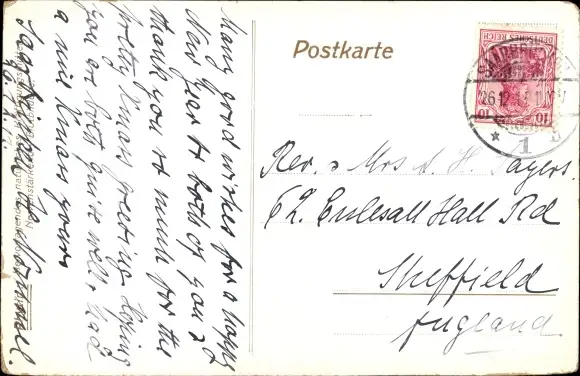 Many good wishes for a happy
New Year to both of you &
thank you so much for the
pretty Xmas greeting. Hoping
you are both quite well & had
a nice Xmas yours
Postkarte
DEUTSCHES REICH
10 10
26.12.
1
Rev. & Mrs A. H. Sayers.
62. Ecclesall Hall Rd
Sheffield
England